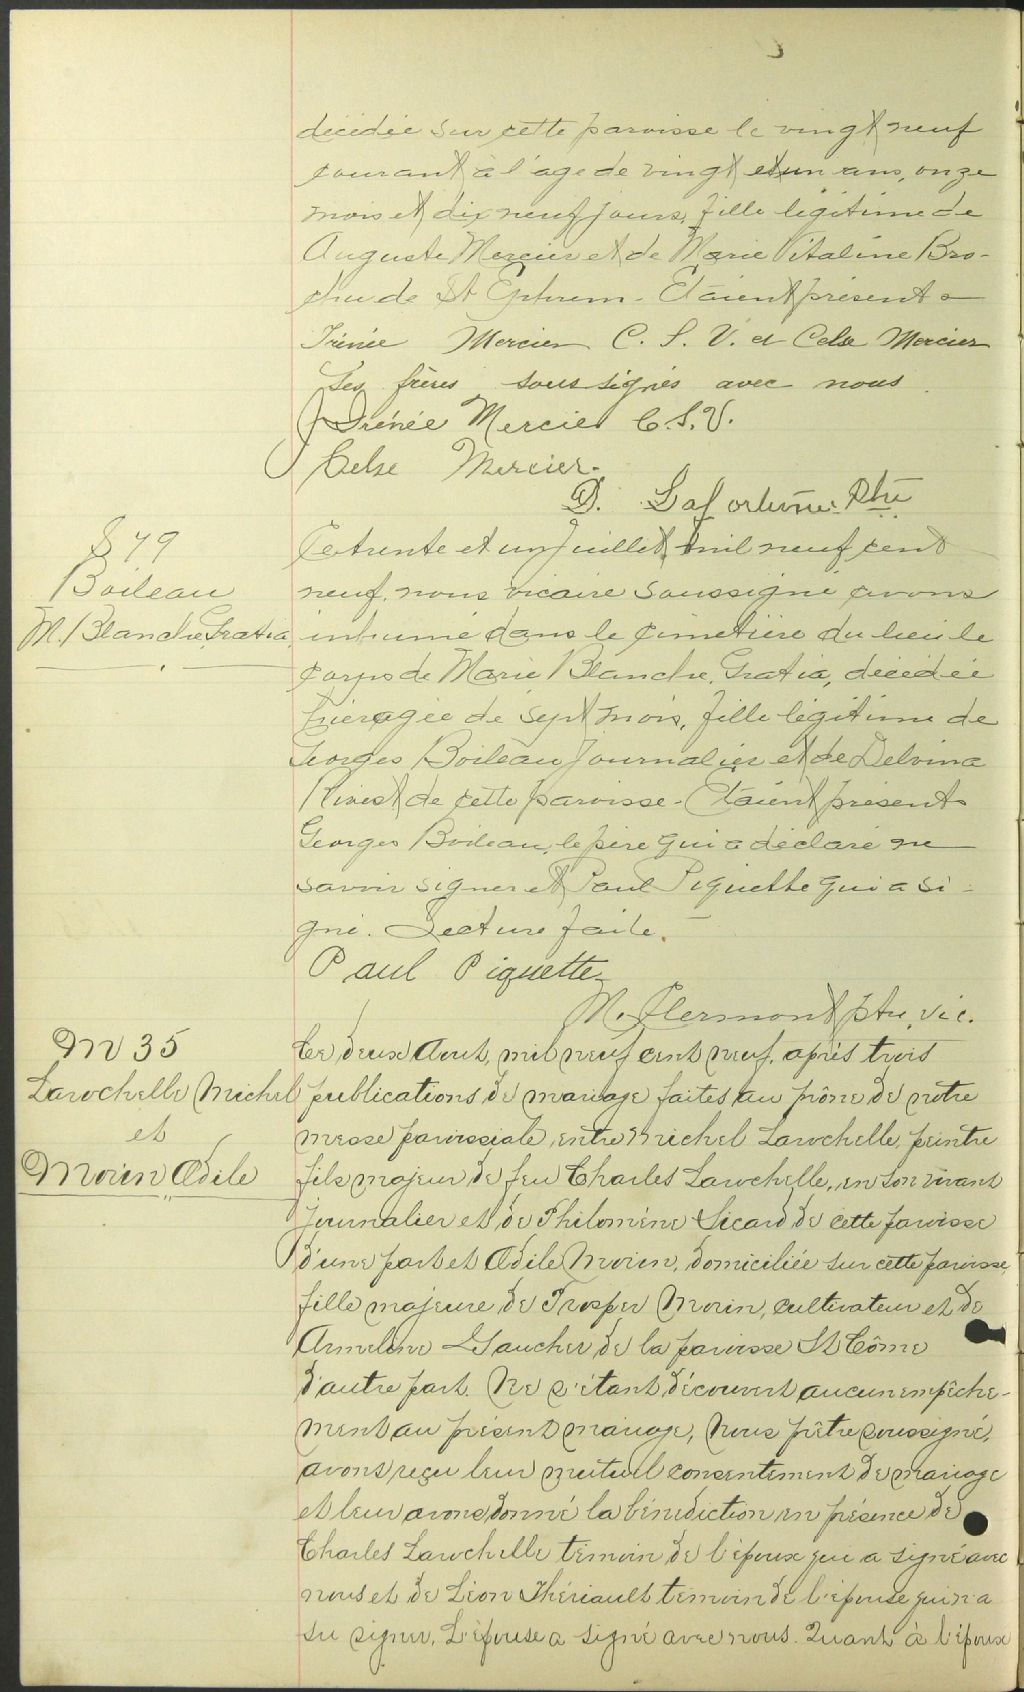 décédée sur cette paroisse le vingt neuf
courant à l'age de vingt et un ans, onze
mois et dix neuf jours, fille légitime de
Auguste Mercier et de Marie Vitaline Bro-
chu de St Ephrem - Etaient présents
Irénée Mercier C. S. V. et Celse Mercier
Ses frères soussignés avec nous.
Irénée Mercier C.S.V.
Celse Mercier.
D. Laf Ptre
S 79
Boileau
M. Blanche, Gratia
Ce trente et un Juillet, mil neuf cent
neuf, nous vicaire soussigné avons
inhumé dans le cimetière du lieu le
corps de Marie Blanche, Gratia, décédée
hier agée de sept mois, fille légitime de
Georges Boileau journalier et de Delvina
Rivest de cette paroisse - Etaient présents
Georges Boileau, le père qui a déclaré ne
savoir signer et Paul Piquette qui a si-
gné. Lecture faite.
Paul Piquette
M. Clermont ptre, vic.
M 35
Larochelle Michel
et
Morin Odile
Ce deux Aout, mil neuf cent neuf, après trois
publications de mariage faites au prône de notre
messe paroissiale, entre Michel Larochelle, peintre
fils majeur de feu Charles Larochelle, en son vivant
journalier et de Philomène Sicard de cette paroisse
d'une part et Odile Morin, domiciliée sur cette paroisse,
fille majeure de Prosper Morin, cultivateur et de
Armeline Gaucher de la paroisse St Côme
d'autre part. Ne s'étant découvert aucun empêche-
ment au présent mariage, Nous prêtre soussigné,
avons reçu leur mutuel consentement de mariage
et leur avons donné la bénédiction en présence de
Charles Larochelle témoin de l'époux qui a signé avec
nous et de Léon Thériault témoin de l'épouse qui n'a
su signer. L'épouse a signé avec nous. Quant à l'époux